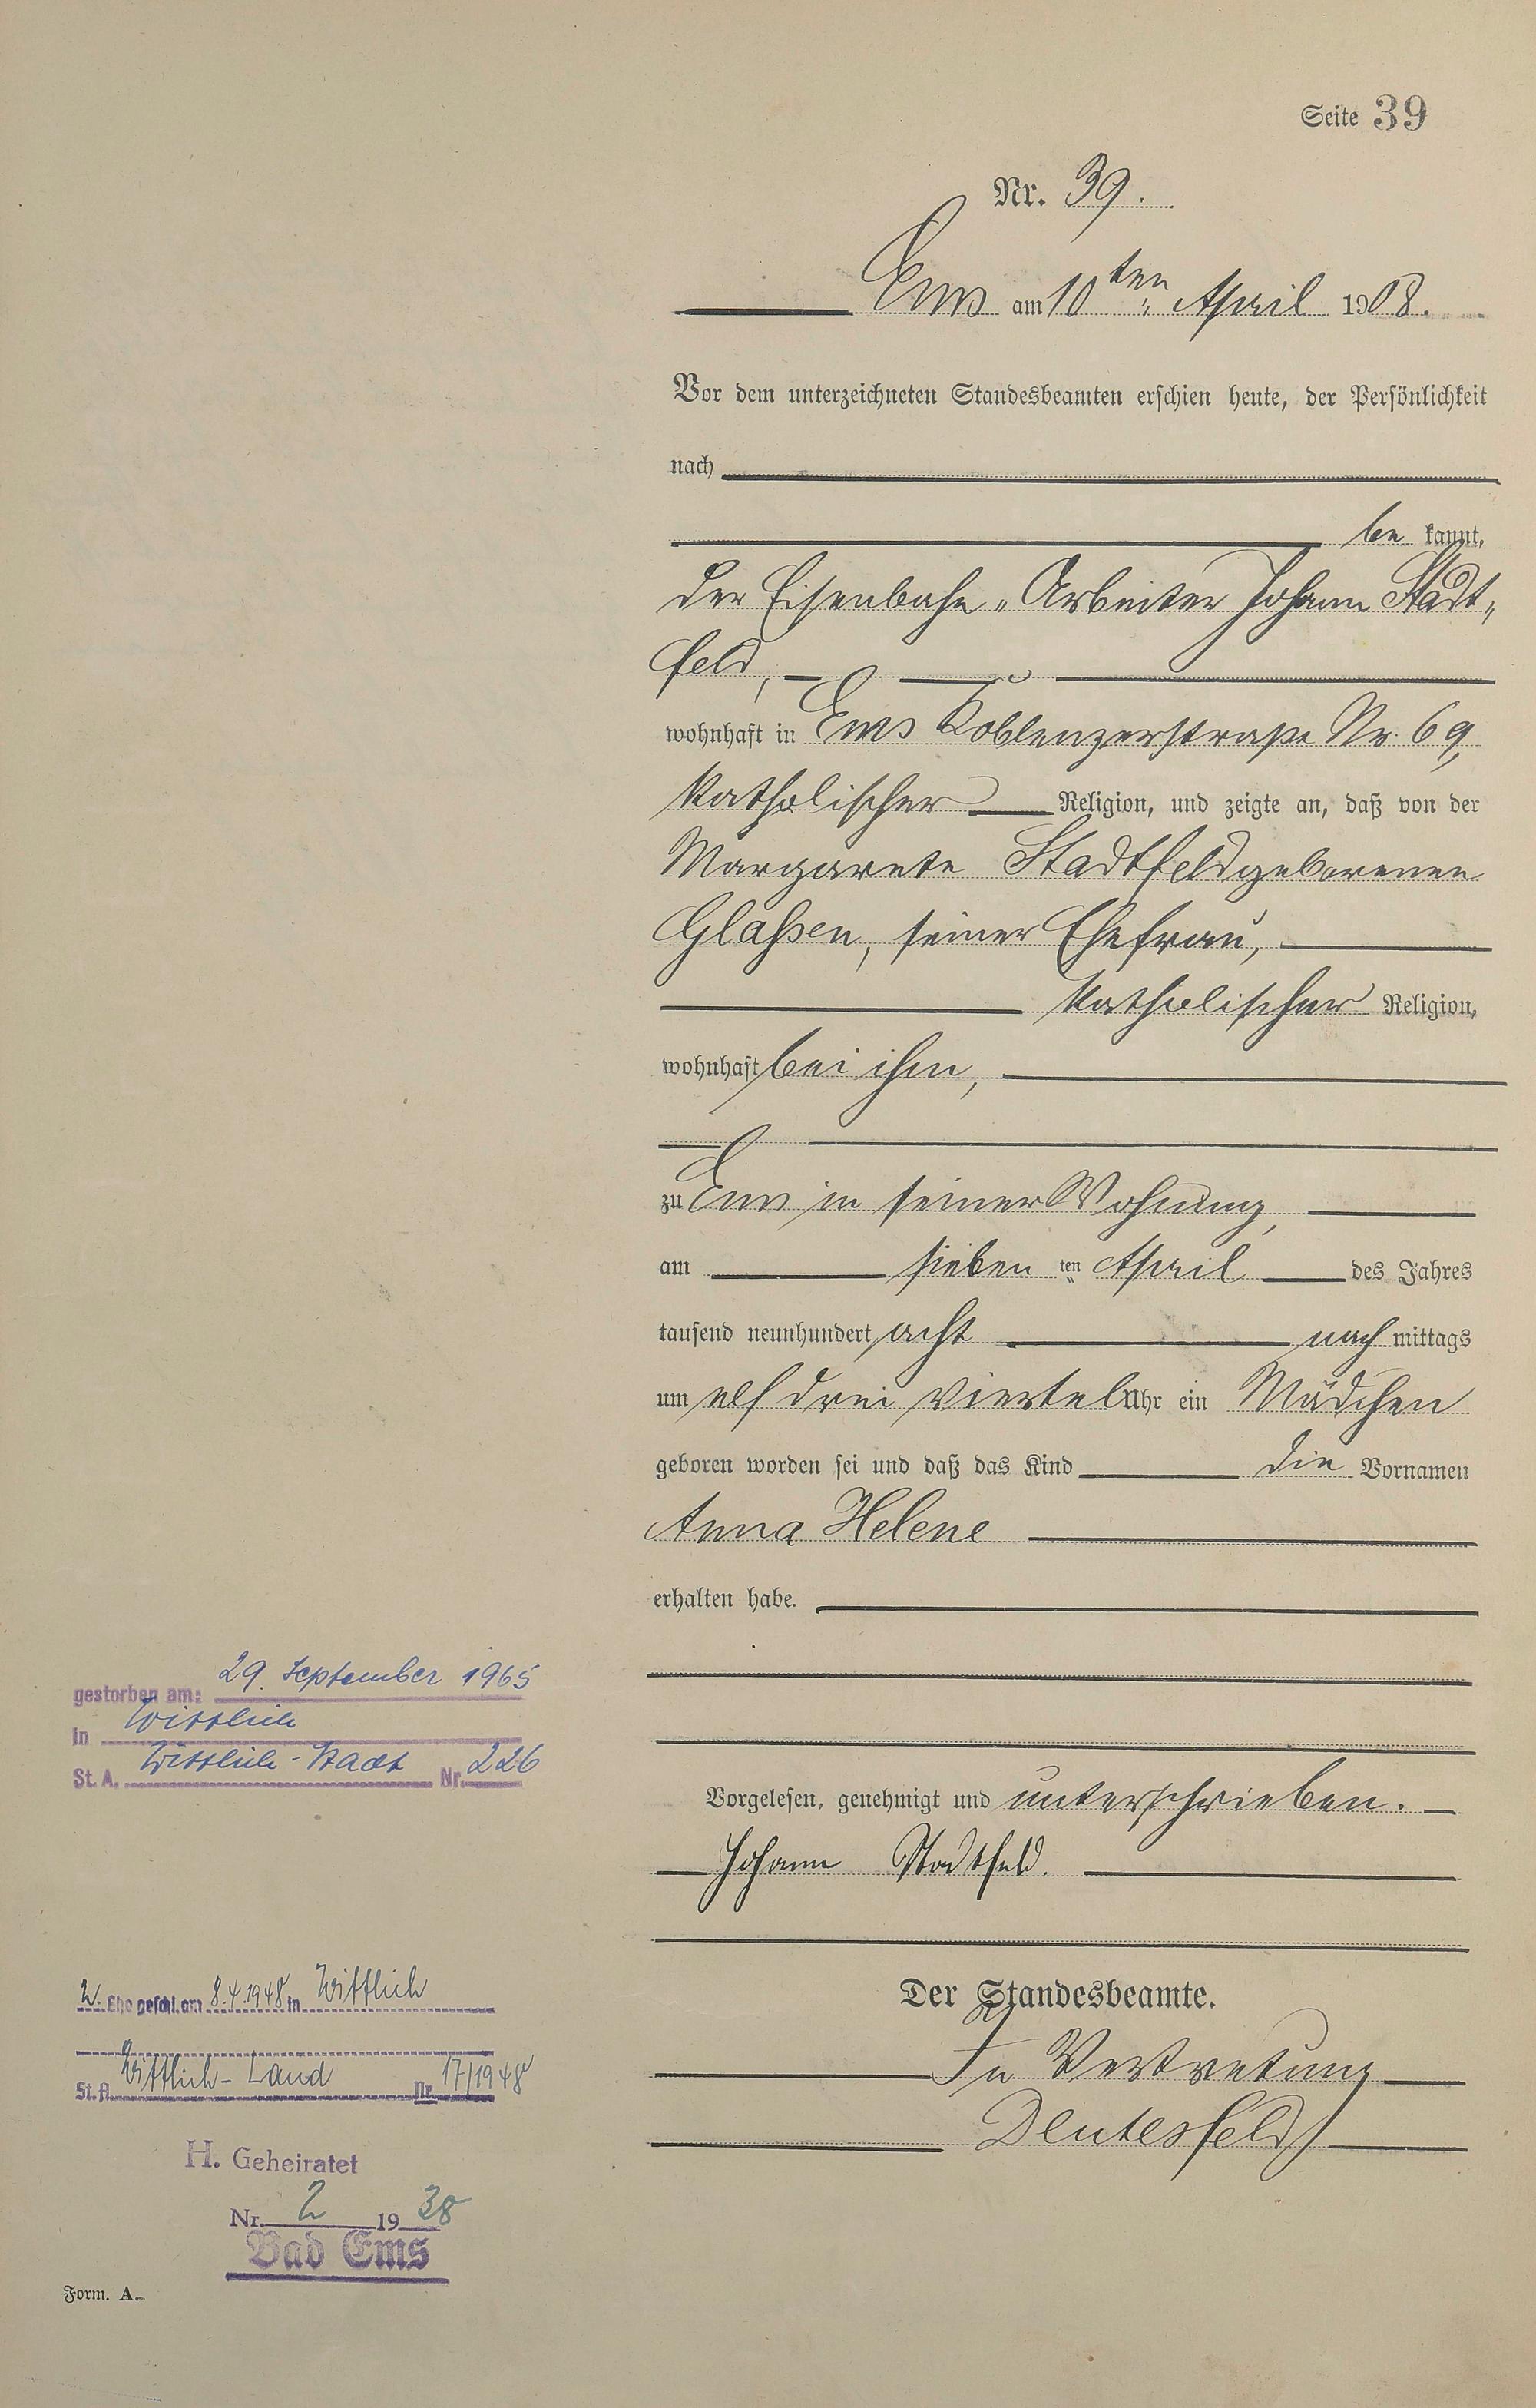 Seite 39
Nr. 39.
Ems am 10ten April 1908.
Vor dem unterzeichneten Standesbeamten erschien heute, der Persönlichkeit
nach
be kannt,
der Eisenbahn-Arbeiter Johann Stadt-
feld,
wohnhaft in Ems Koblenzerstraße Nr. 69,
katholischer Religion, und zeigte an, daß von der
Margarete Stadtfeld geborenen
Glahsen, seiner Ehefrau,
katholischer Religion,
wohnhaft bei ihm,
zu Ems in seiner Wohnung,
am sieben ten April des Jahres
tausend neunhundert acht nach mittags
um elf drei viertel Uhr ein Mädchen
geboren worden sei und daß das Kind die Vornamen
Anna Helene
erhalten habe.
Vorgelesen, genehmigt und unterschrieben.
Johann Stadtfeld.
Der Standesbeamte.
In Vertretung
Deutesfeld
gestorben am: 29. September 1965
in Wittlich
St. A. Wittlich-Stadt Nr. 226
2. Ehe geschl. am 8.4.1948 in Wittlich
St. A. Wittlich-Land Nr. 17/1948
H. Geheiratet
Nr. 2 1938
Bad Ems
Form. A.